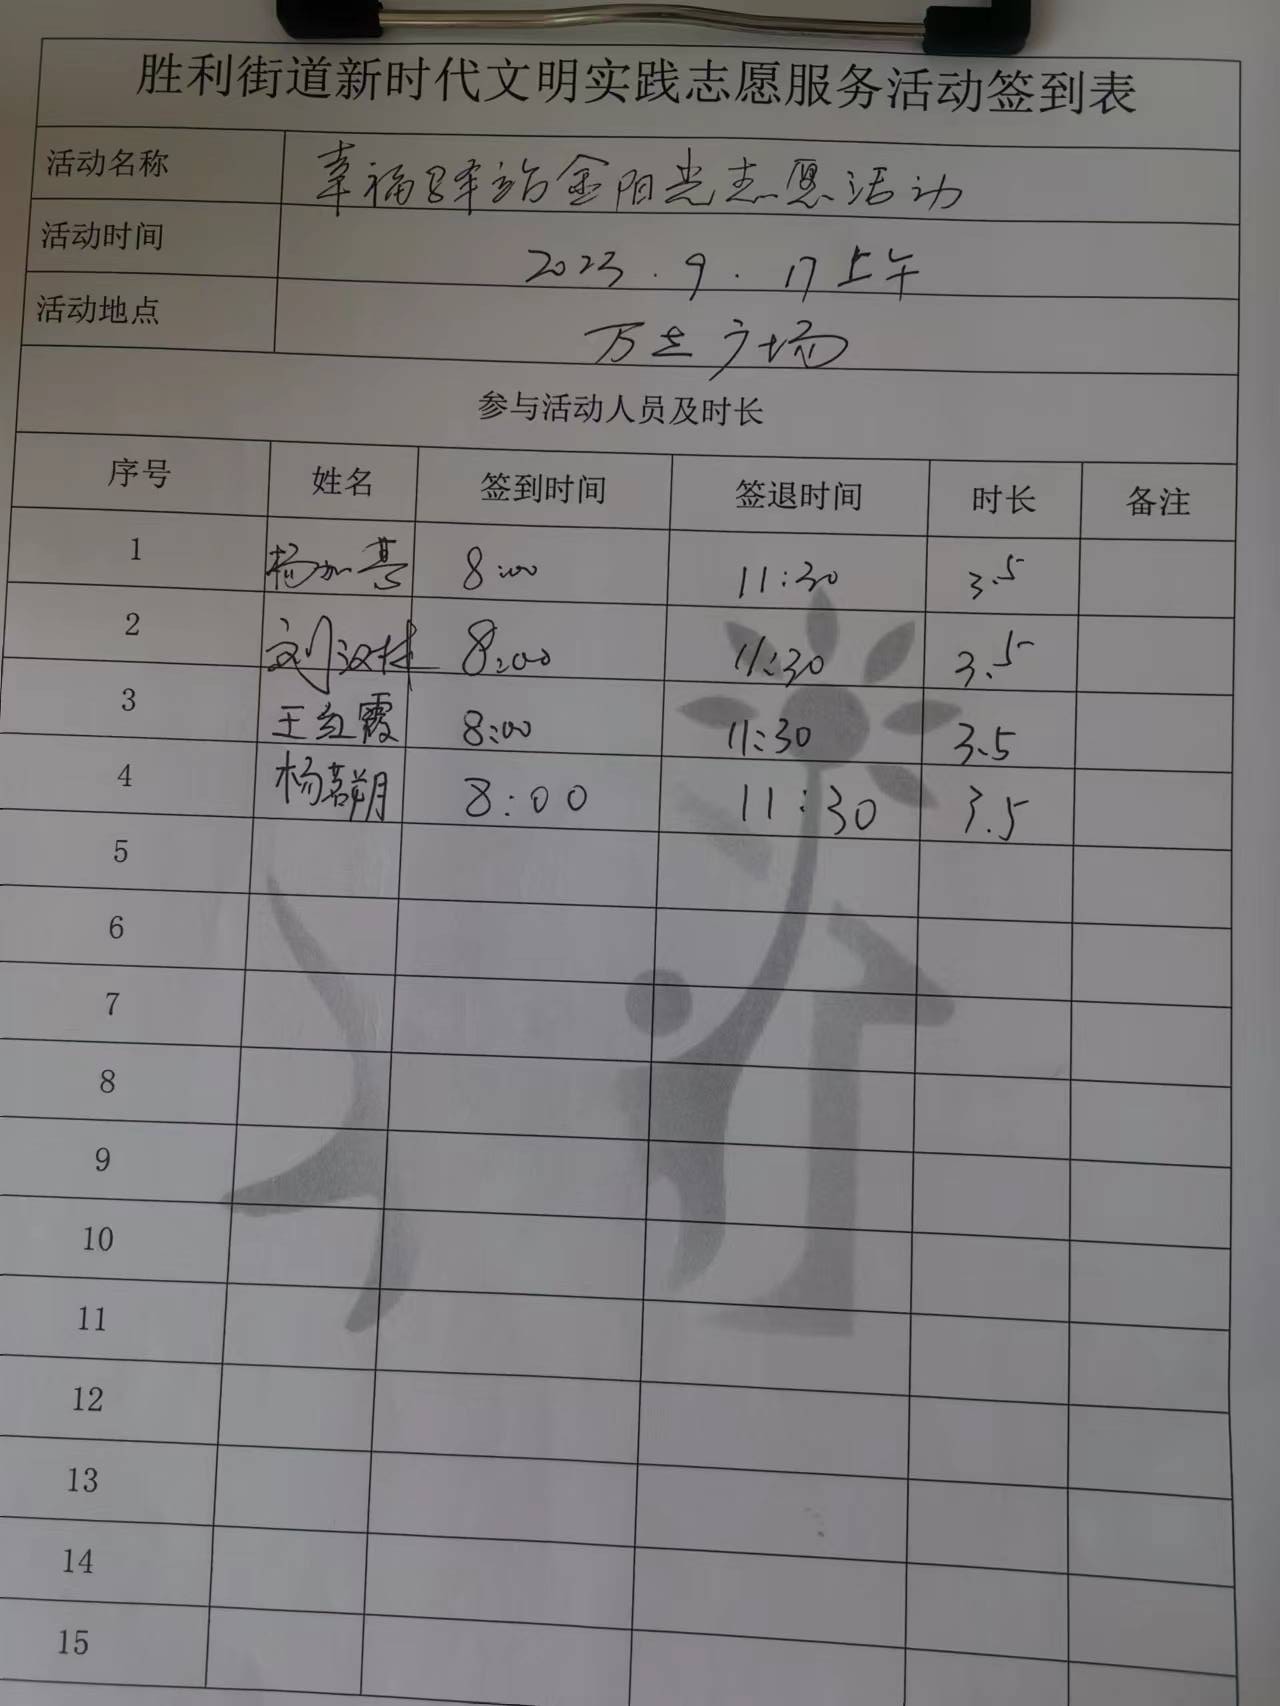 胜利街道新时代文明实践志愿服务活动签到表
活动名称 幸福驿站金阳光志愿活动
活动时间 2023.9.17上午
活动地点 万达广场
参与活动人员及时长
序号 姓名 签到时间 签退时间 时长 备注
1 8:00 11:30 3.5
2 刘汉林 8:00 11:30 3.5
3 王红霞 8:00 11:30 3.5
4 8:00 11:30 3.5
5
6
7
8
9
10
11
12
13
14
15